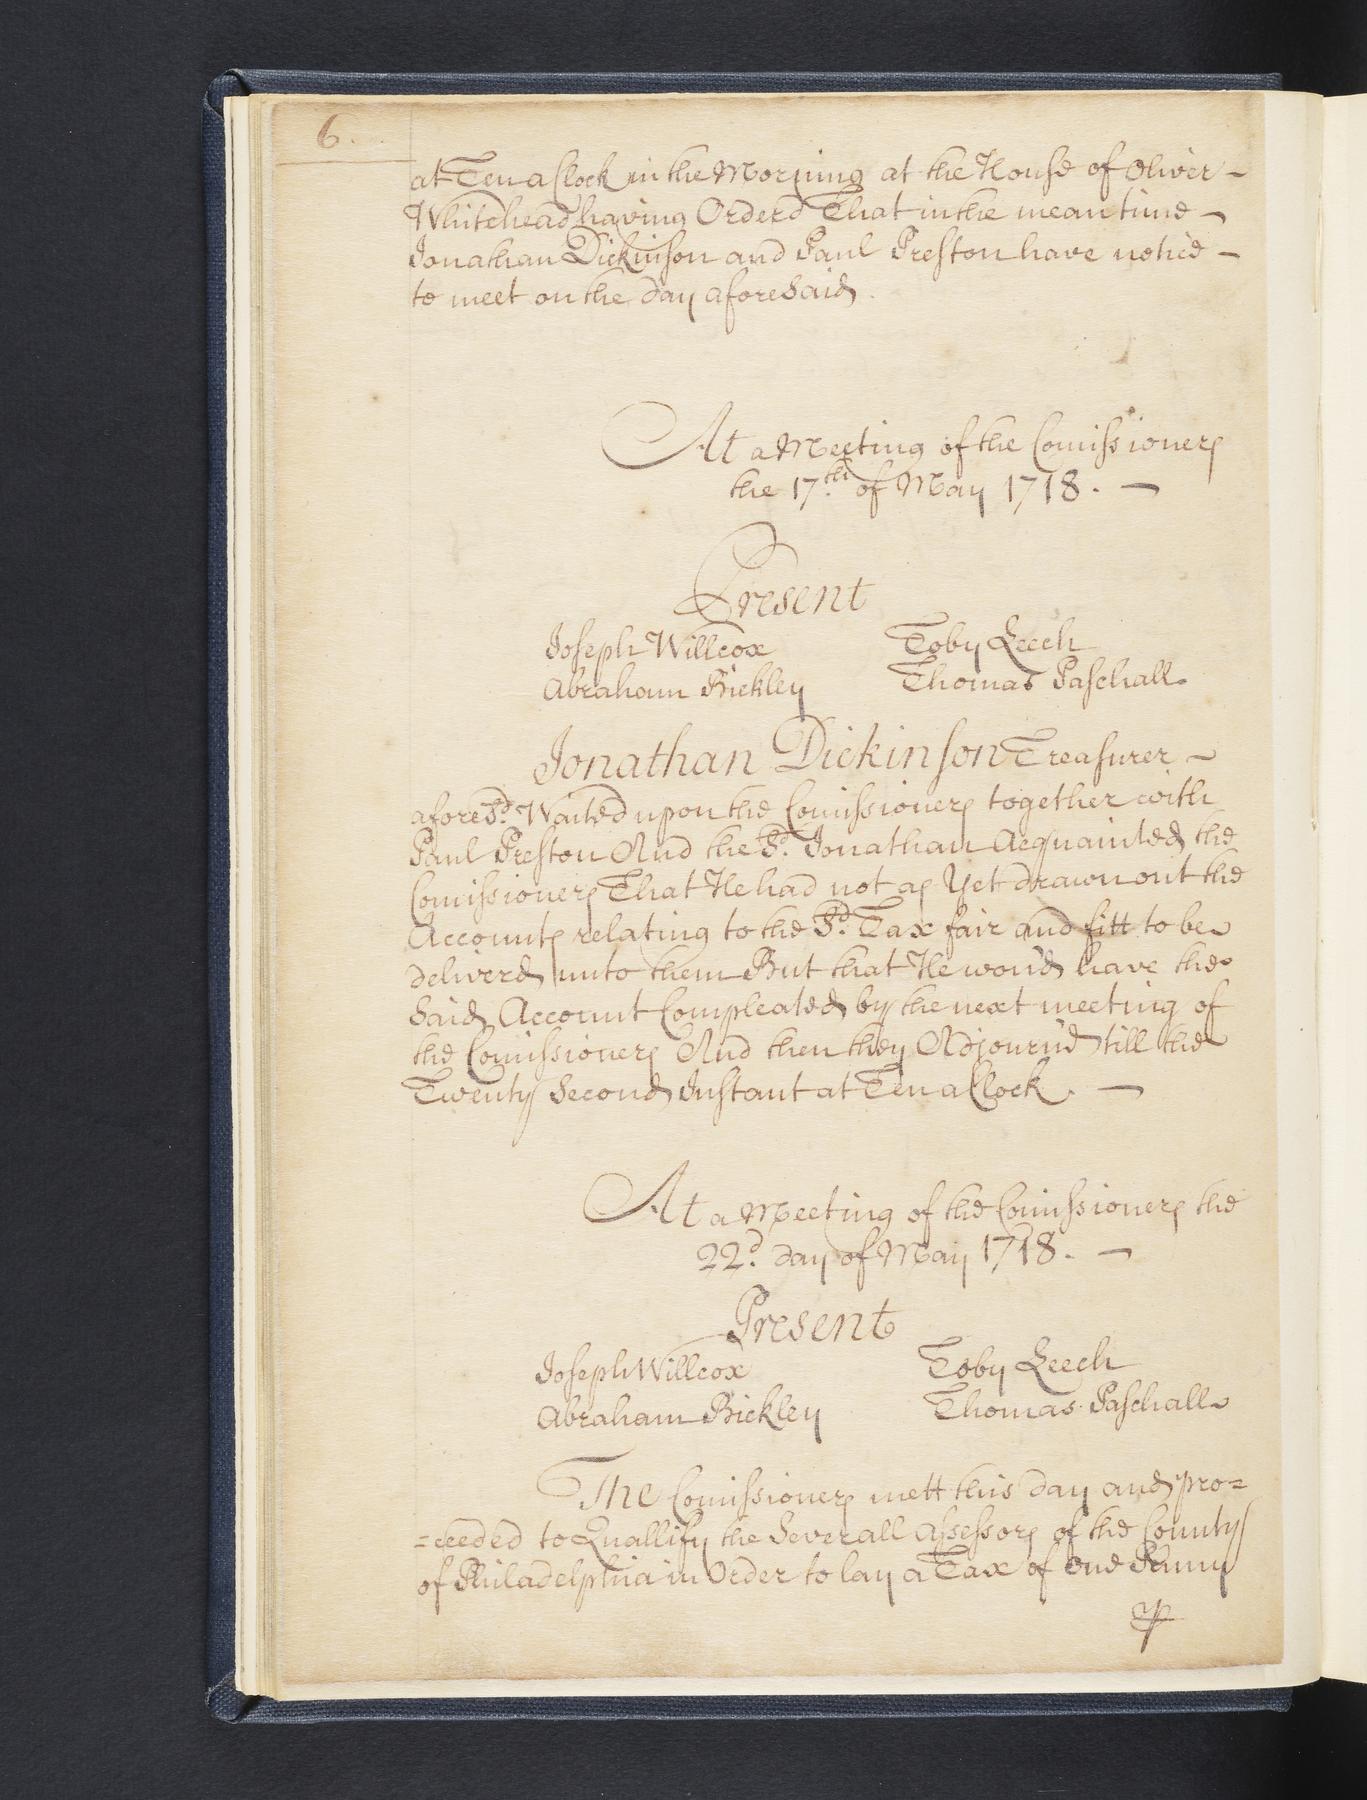 6.
at Ten a Clock in the Morning at the House of Oliver -
Whitehead having Orderd That in the mean time -
Jonathan Dickinson and Paul Preston have notice -
to meet on the day aforesaid.
At a Meeting of the Comissioners
the 17th. of May 1718. -
Present
Joseph Willcox Toby Leech
Abraham Bickley Thomas Paschall
Jonathan Dickinson Treasurer -
aforesd. Waited upon the Comissioners together with
Paul Preston And the Sd. Jonathan Acquainted the
Comissioners That He had not as Yet drawn out the
Accounts relating to the Sd. Tax fair and fitt to be
deliverd unto them But that He woud have the
Said Account Compleated by the next meeting of
the Comissioners And then they Adjournd till the
Twenty Second Instant at Ten a Clock. -
At a Meeting of the Comissioners the
22d. day of May 1718. -
Present
Joseph Willcox Toby Leech
Abraham Bickley Thomas Paschall
The Comissioners mett this day and pro=
=ceeded to Quallify the Severall Assessors of the County
of Philadelphia in Order to lay a Tax of One Penny
℔